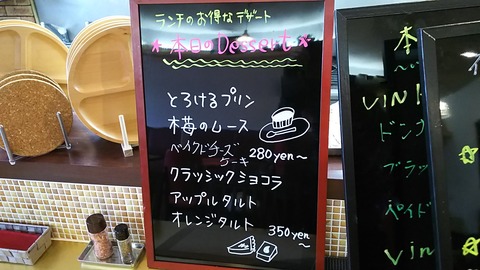 ランチのお得なデザート
★本日のDessert★
とろけるプリン
木苺のムース
ベイクドチーズ
ケーキ
280yen～
クラッシックショコラ
アップルタルト
オレンジタルト
350yen
～
本
VIN
ドンク
ブラッ
ペイド
Vin